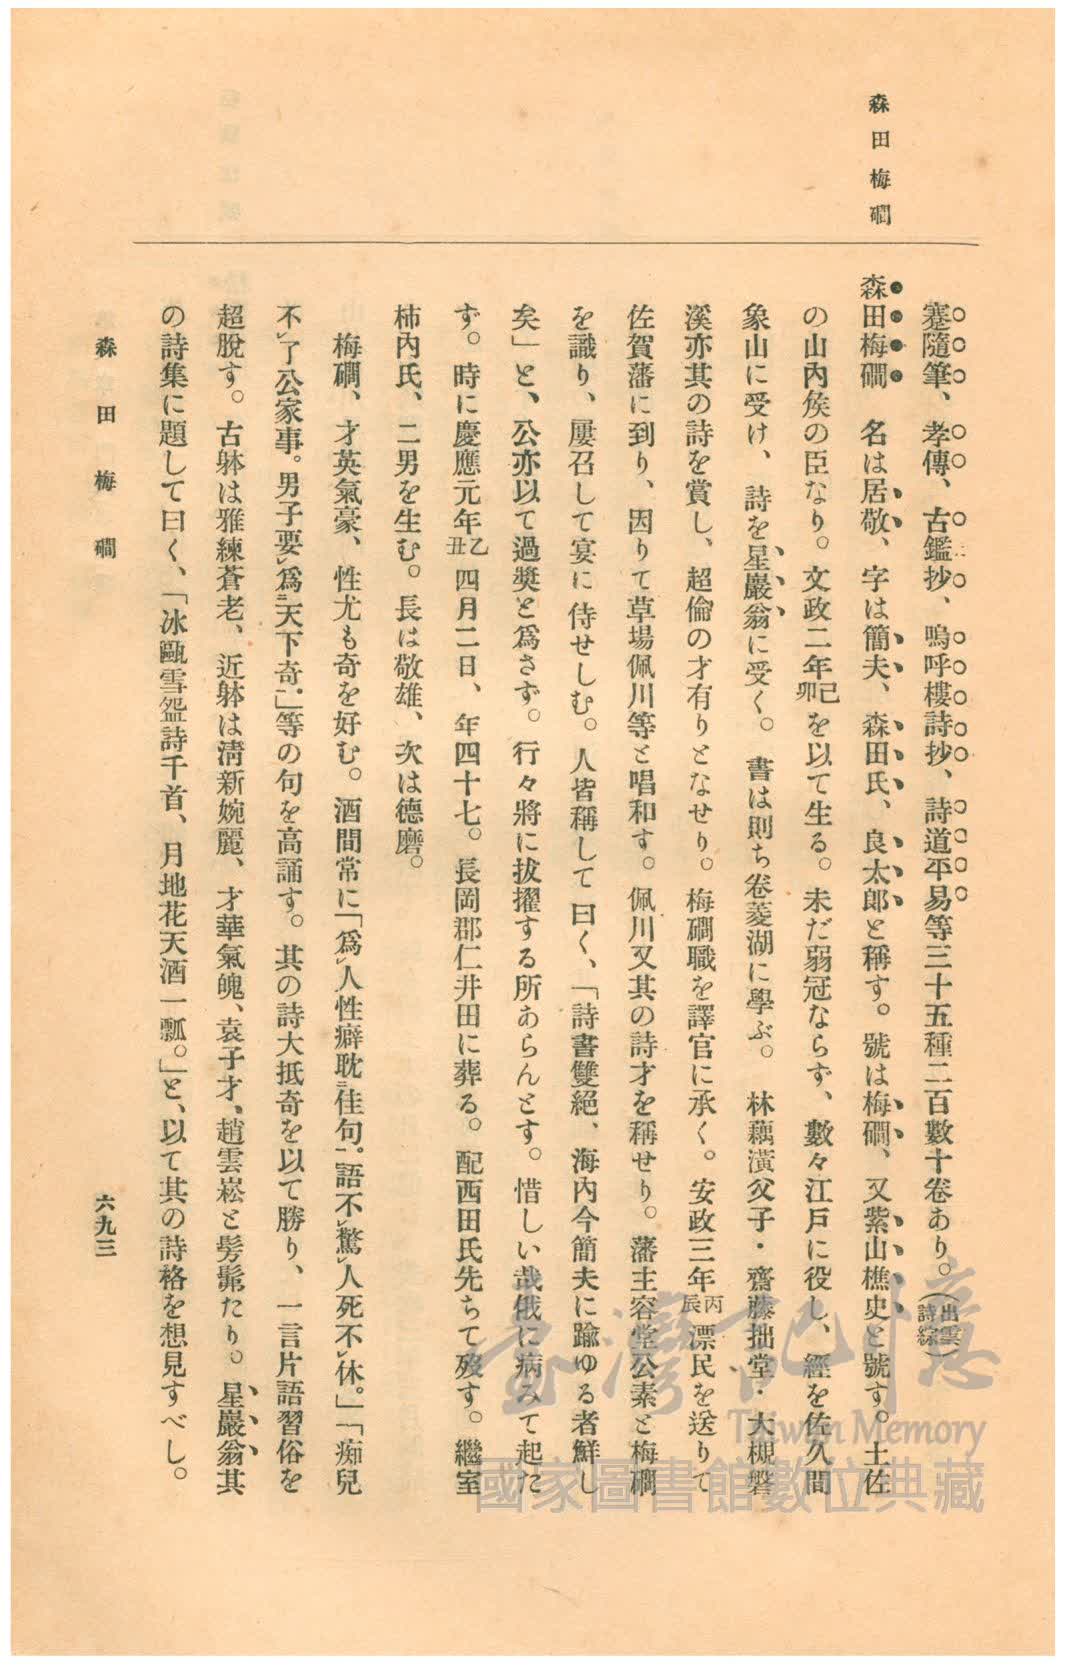 森田梅礀
蹇隨筆、孝傳、古鑑抄、嗚呼樓詩抄、詩道平易等三十五種二百數十卷あり。(出雲詩綜)
森田梅礀　名は居敬、字は簡夫、森田氏、良太郎と稱す。號は梅礀、又紫山樵史と號す。土佐
の山內矦の臣なり。文政二年己卯を以て生る。未だ弱冠ならず、數々江戸に役し、經を佐久間
象山に受け、詩を星巖翁に受く。書は則ち卷菱湖に學ぶ。林藕潢父子・齋藤拙堂・大槻磐
溪亦其の詩を賞し、超倫の才有りとなせり。梅礀職を譯官に承く。安政三年丙辰漂民を送りて
佐賀藩に到り、因りて草場佩川等と唱和す。佩川又其の詩才を稱せり。藩主容堂公素と梅礀
を識り、屢召して宴に侍せしむ。人皆稱して曰く、「詩書雙絕、海內今簡夫に踰ゆる者鮮し
矣」と、公亦以て過獎と爲さず。行々將に拔擢する所あらんとす。惜しい哉俄に病みて起た
ず。時に慶應元年乙丑四月二日、年四十七。長岡郡仁井田に葬る。配西田氏先ちて歿す。繼室
柿內氏、二男を生む。長は敬雄、次は德磨。
梅礀、才英氣豪、性尤も奇を好む。酒間常に「爲レ人性癖耽二佳句一。語不レ驚レ人死不レ休。」「痴兒
不レ了公家事。男子要レ爲二天下奇一。」等の句を高誦す。其の詩大抵奇を以て勝り、一言片語習俗を
超脫す。古躰は雅練蒼老、近躰は淸新婉麗、才華氣魄、袁子才、趙雲崧と髣髴たり。星巖翁其
の詩集に題して曰く、「冰甌雪盌詩千首、月地花天酒一瓢。」と、以て其の詩格を想見すべし。
森田梅礀
六九三
臺灣記憶
Taiwan Memory
國家圖書館數位典藏